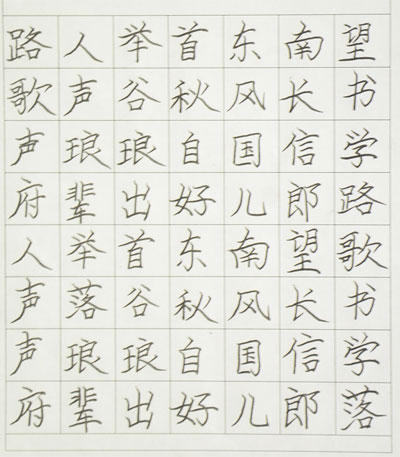 路人举首东南望
歌声谷秋风长书
声琅琅自国信学
府辈出好儿郎路
人举首东南望歌
声落谷秋风长书
声琅琅自国信学
府辈出好儿郎落